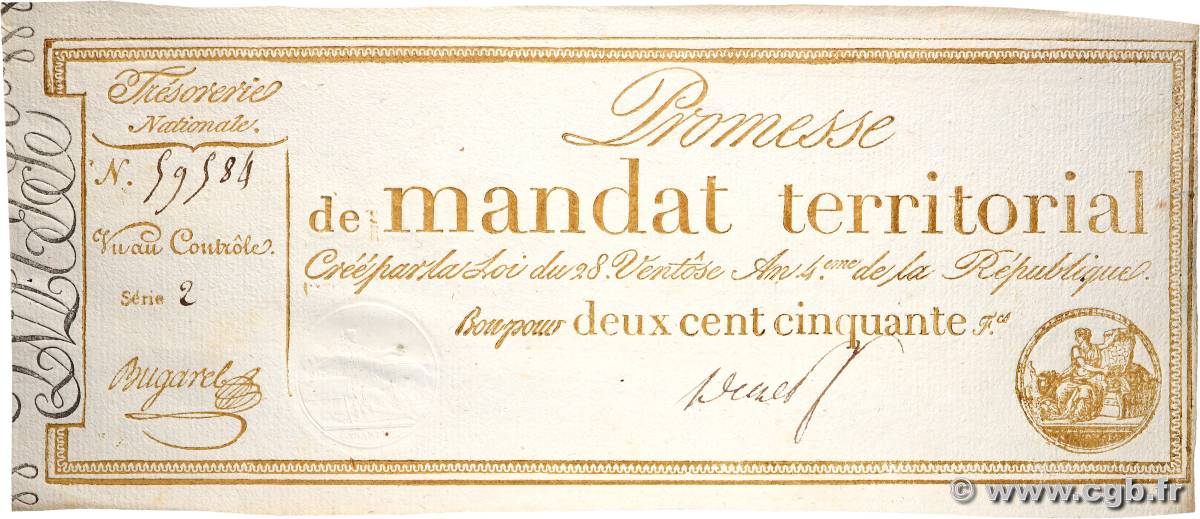 Trésorerie
Nationale.
N. 59584
Vu au Contrôle.
Série 2
Bugarel
Promesse
de mandat territorial
Créé par la Loi du 28. Ventôse An 4.eme de la République.
Bon pour deux cent cinquante F.cs
© www.cgb.fr